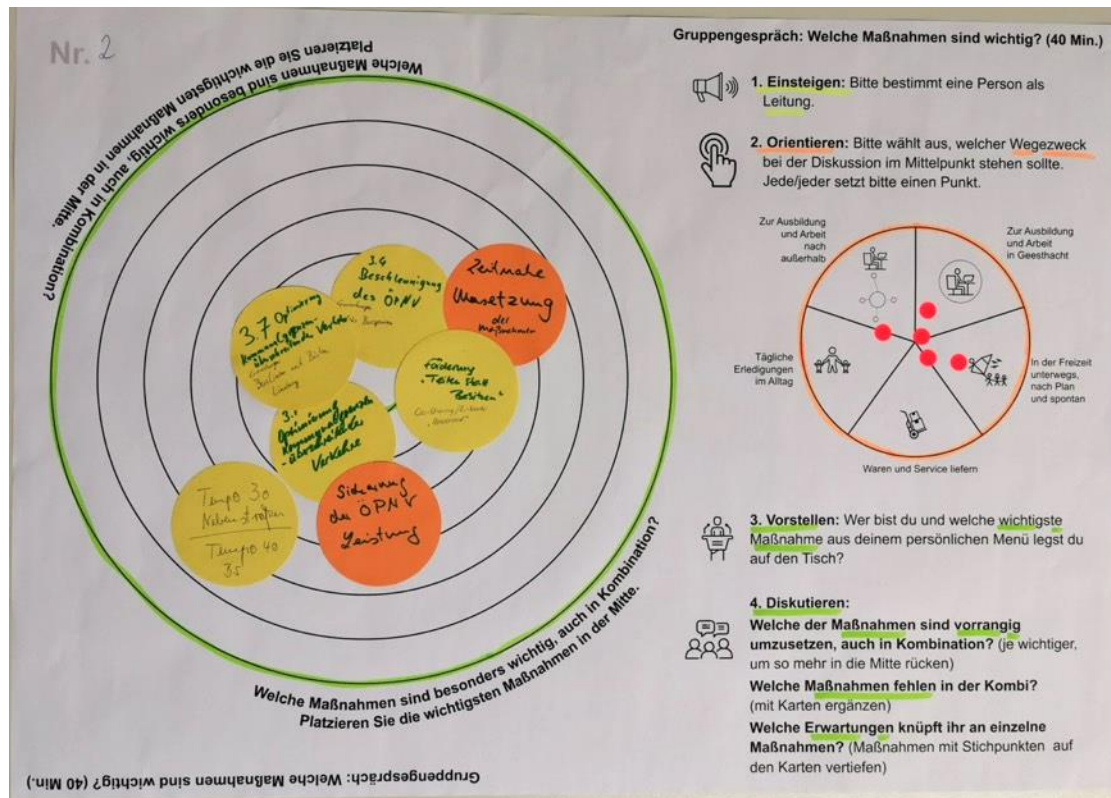 Nr. 2
Gruppengespräch: Welche Maßnahmen sind wichtig? (40 Min.)
Welche Maßnahmen sind besonders wichtig, auch in Kombination?
Platzieren Sie die wichtigsten Maßnahmen in der Mitte.
3.4
Beschleunigung
des ÖPNV
Zeitnahe
Umsetzung
der
Maßnahmen
3.7 Optimierung
Förderung
"Teilen statt
Besitzen"
Optimierung
Verkehre
Tempo 30
Nebenstraßen
Tempo 40
35
Sicherung
der ÖPNV
Leistung
Welche Maßnahmen sind besonders wichtig, auch in Kombination?
Platzieren Sie die wichtigsten Maßnahmen in der Mitte.
Gruppengespräch: Welche Maßnahmen sind wichtig? (40 Min.)
1. Einsteigen: Bitte bestimmt eine Person als
Leitung.
2. Orientieren: Bitte wählt aus, welcher Wegezweck
bei der Diskussion im Mittelpunkt stehen sollte.
Jede/jeder setzt bitte einen Punkt.
Zur Ausbildung
und Arbeit
nach
außerhalb
Zur Ausbildung
und Arbeit
in Geesthacht
Tägliche
Erledigungen
im Alltag
In der Freizeit
unterwegs,
nach Plan
und spontan
Waren und Service liefern
3. Vorstellen: Wer bist du und welche wichtigste
Maßnahme aus deinem persönlichen Menü legst du
auf den Tisch?
4. Diskutieren:
Welche der Maßnahmen sind vorrangig
umzusetzen, auch in Kombination? (je wichtiger,
um so mehr in die Mitte rücken)
Welche Maßnahmen fehlen in der Kombi?
(mit Karten ergänzen)
Welche Erwartungen knüpft ihr an einzelne
Maßnahmen? (Maßnahmen mit Stichpunkten auf
den Karten vertiefen)